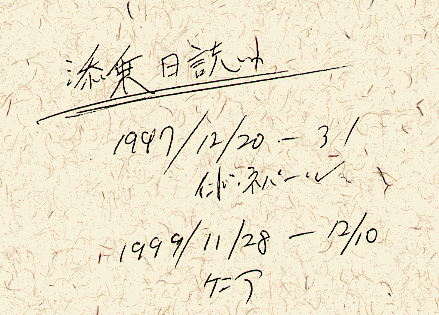 添乗日誌
1997/12/20 - 31
インド・ネパール
1999/11/28 - 12/10
ケニア